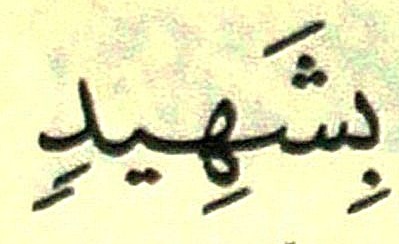 بِشَهِيدٍ